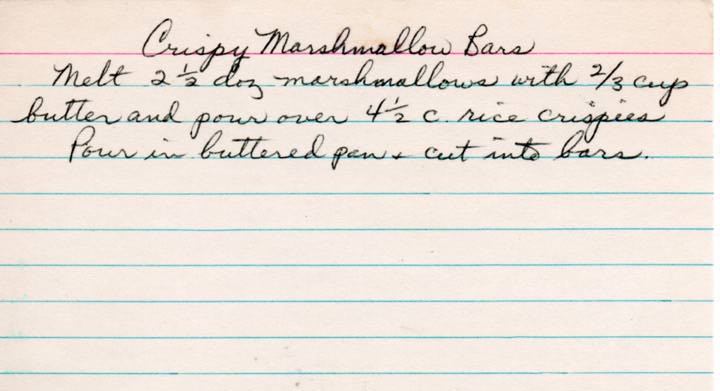 Crispy Marshmallow Bars
Melt 2 1/2 doz marshmallows with 2/3 cup
butter and pour over 4 1/2 c. rice crispies
Pour in buttered pan + cut into bars.